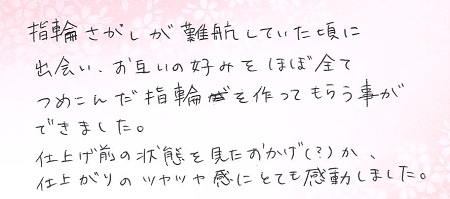 指輪さがしが難航していた頃に
出会い、お互いの好みをほぼ全て
つめこんだ指輪を作ってもらう事が
できました。
仕上げ前の状態を見たおかげ(?)か、
仕上がりのツヤツヤ感にとても感動しました。